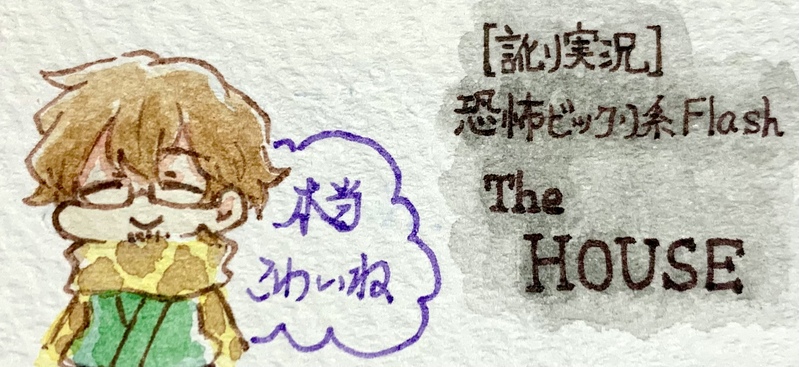 本当
こわいね
[訛り実況]
恐怖ビックリ系Flash
The
HOUSE